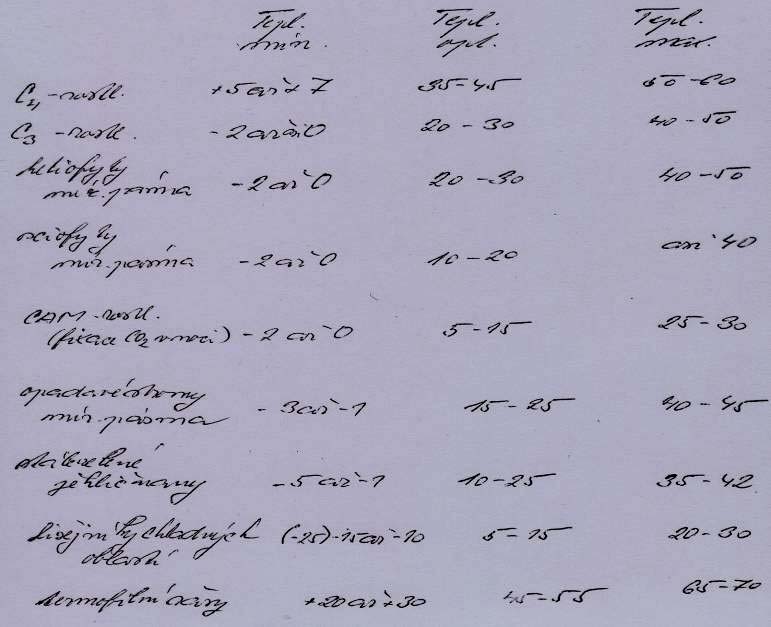 Tepl. Tepl. Tepl.
min. opt. max.
C4-rostl. +5 až +7 35-45 50-60
C3-rostl. -2 až 0 20-30 40-50
heliofyty
mír. pásma -2 až 0 20-30 40-50
sciofyty
mír. pásma -2 až 0 10-20 asi 40
CAM-rostl.
(fixace CO2 v noci) -2 až 0 5-15 25-30
opadavé stromy
mír. pásma -3 až -1 15-25 40-45
stálezelené
jehličnany -5 až -1 10-25 35-42
lišejníky chladných (-25)-15 až -10 5-15 20-30
oblastí
termofilní +20 až +30 45-55 65-70